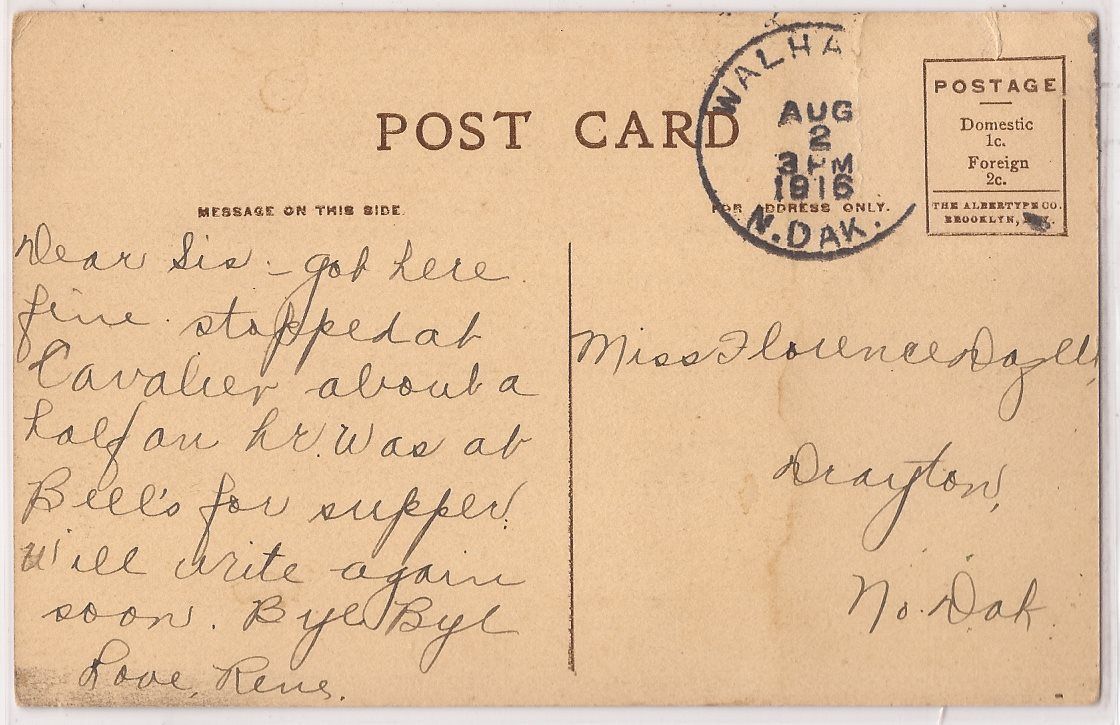 POST CARD
WALHA
AUG
2
3 PM
1916
N. DAK.
POSTAGE
Domestic
1c.
Foreign
2c.
THE ALBERTYPE CO.
BROOKLYN, N.Y.
MESSAGE ON THIS SIDE.
FOR ADDRESS ONLY.
Dear Sis - got here
fine. stopped at
Cavalier about a
half an hr. Was at
Bill's for supper.
Will write again
soon. Bye Bye
Love, Rene.
Miss Florence
Drayton,
No. Dak